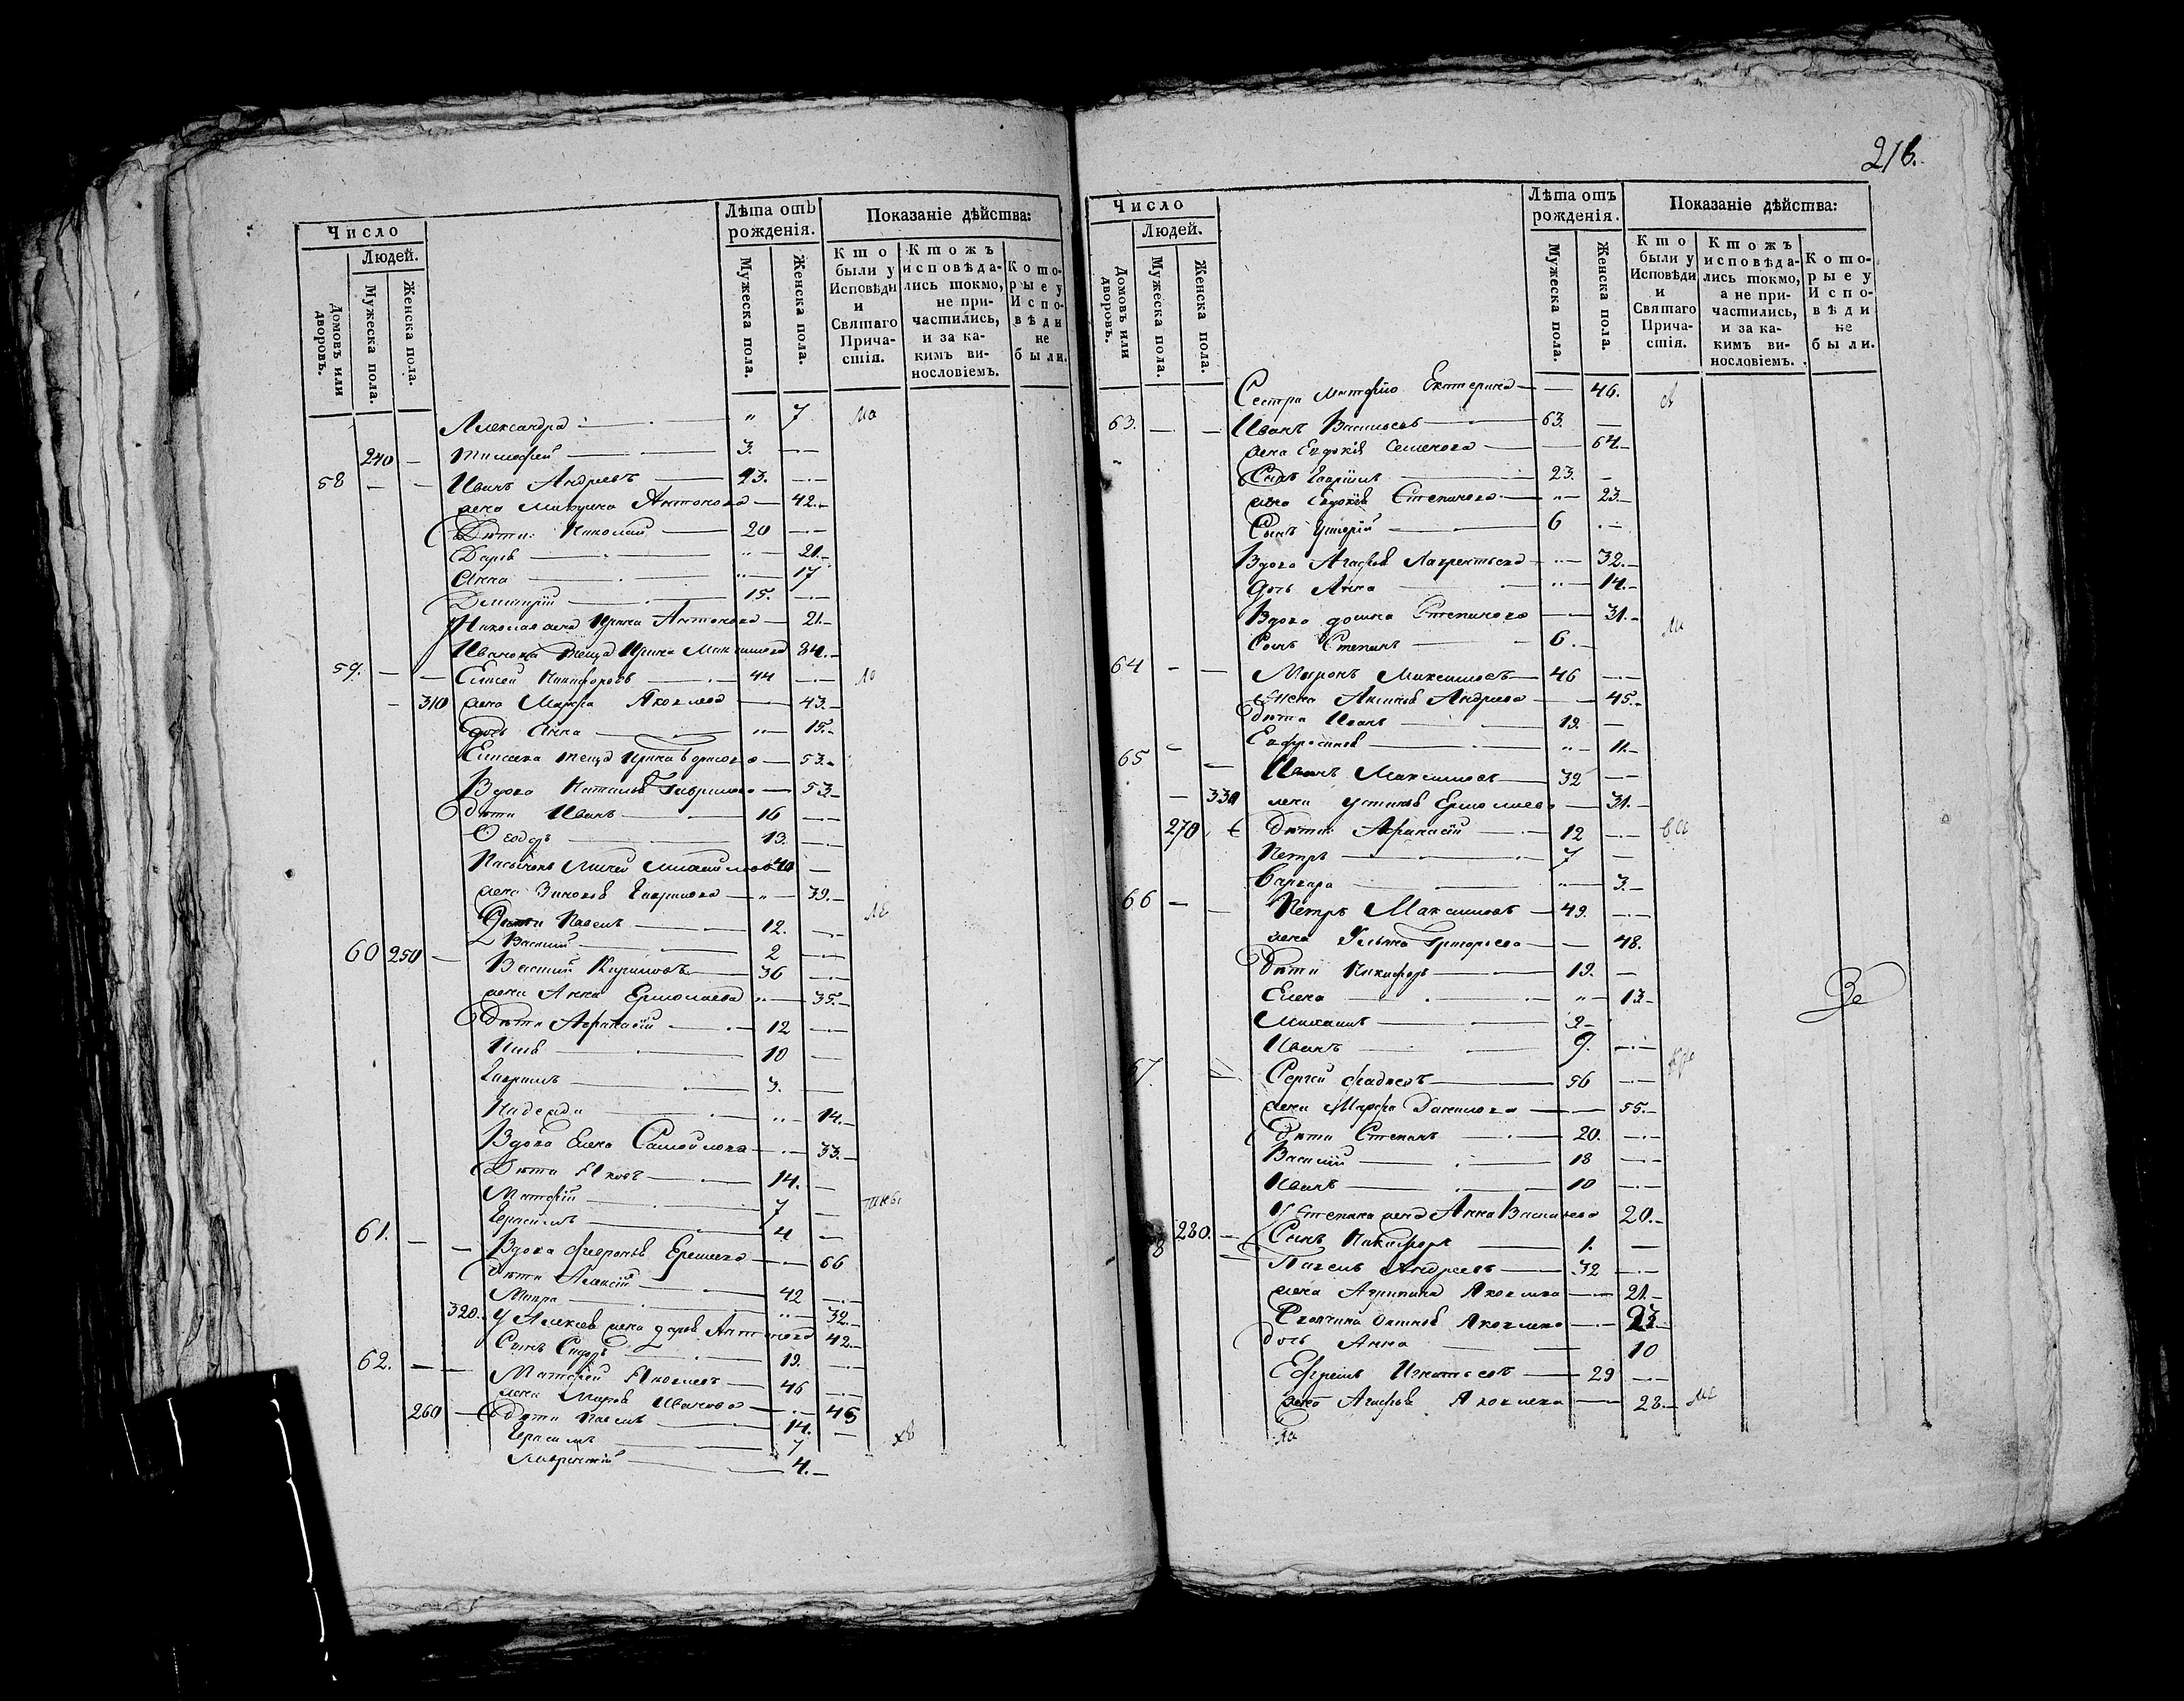 Число
Людей.
Домовъ или дворовъ.
Мужеска пола.
Женска пола.
Лѣта отъ рожденія.
Мужеска пола.
Женска пола.
Показаніе дѣйства:
Кто были у Исповѣди и Святаго Причастія.
Ктожъ исповѣдались токмо, не причастились, и за какимъ винословіемъ.
Которые у Исповѣди не были.
Александра " 7
240 Тимофей 3.
58 Иванъ Андреевъ 43.
жена Антонова 42.
Дѣти: Николай 20
Дарья 21.
Анна 17
Дмитрій 15.
Николая жена Ирина Антонова 21.
Иванова теща Ирина 84.
59. Елисей Никифоровъ 44
310 жена Марфа Яковлева 43.
дочь Анна 15.
Елисеева теща Ирина Борисова 53.
Вдова Наталья Гаврилова 53.
Дѣти Иванъ 16
Ѳеодоръ 13.
Пасынокъ 40
жена Зиновья Гаврилова 39.
Дѣти Павелъ 12.
Василій 2
60 250 Василій Кириловъ 36
жена Анна Ермолаева 35.
Дѣти Афанасій 12
Илья 10
Гаврилъ 3.
Надежда 14.
Вдова Елена Самойлова 33.
Дѣти Яковъ 14.
Матфій 7
Герасимъ 4
61. Вдова Февронья Еремеева 66
Дѣти Алексій 42
Мавра 32.
320. У Алексея жена Дарья Антонова 42.
Сынъ Сидоръ 19.
62. Матфей Яковлевъ 46
жена Марфа Иванова 45
260 Дѣти Павелъ 14.
Герасимъ 7
Лаврентій 4.
216.
Число
Людей.
Домовъ или дворовъ.
Мужеска пола.
Женска пола.
Лѣта отъ рожденія.
Мужеска пола.
Женска пола.
Показаніе дѣйства:
Кто были у Исповѣди и Святаго Причастія.
Ктожъ исповѣдались токмо, а не причастились, и за какимъ винословіемъ.
Которые у Исповѣди не были.
Сестра Екатерина 46.
63. Иванъ Васильевъ 63.
жена Евдокія Семенова 64.
Сынъ Гаврілъ 23.
жена Евдокія Степанова 23.
Сынъ Григорій 6
Вдова Агафья Лаврентьева 32.
дочь Анна 14.
Вдова Степанова 31.
Сынъ Степанъ 6.
64 Миронъ Максимовъ 46
жена Аксинья Андреева 45.
Дѣти Иванъ 19.
Евфросинья 11.
65 Иванъ Максимовъ 32
330 жена Устинья Ермолаева 31.
270 Дѣти: Афанасій 12
Петръ 7
Варвара 3.
66 Петръ Максимовъ 49.
жена Ульяна Григорьева 48.
Дѣти Никифоръ 19.
Елена 13.
Михаилъ
Иванъ 9.
67. Сергей Фадеевъ 56
жена Марфа Данилова 55.
Дѣти Степанъ 20.
Василій 18
Иванъ 10
У Степана жена Анна Васильева 20.
280. Сынъ Никифоръ 1.
8 Павелъ Андреевъ 32
жена Агрипина Яковлева 21.
Яковлева 23.
дочь Анна 10
Ефремъ Игнатьевъ 29
жена Агафья Яковлева 28.